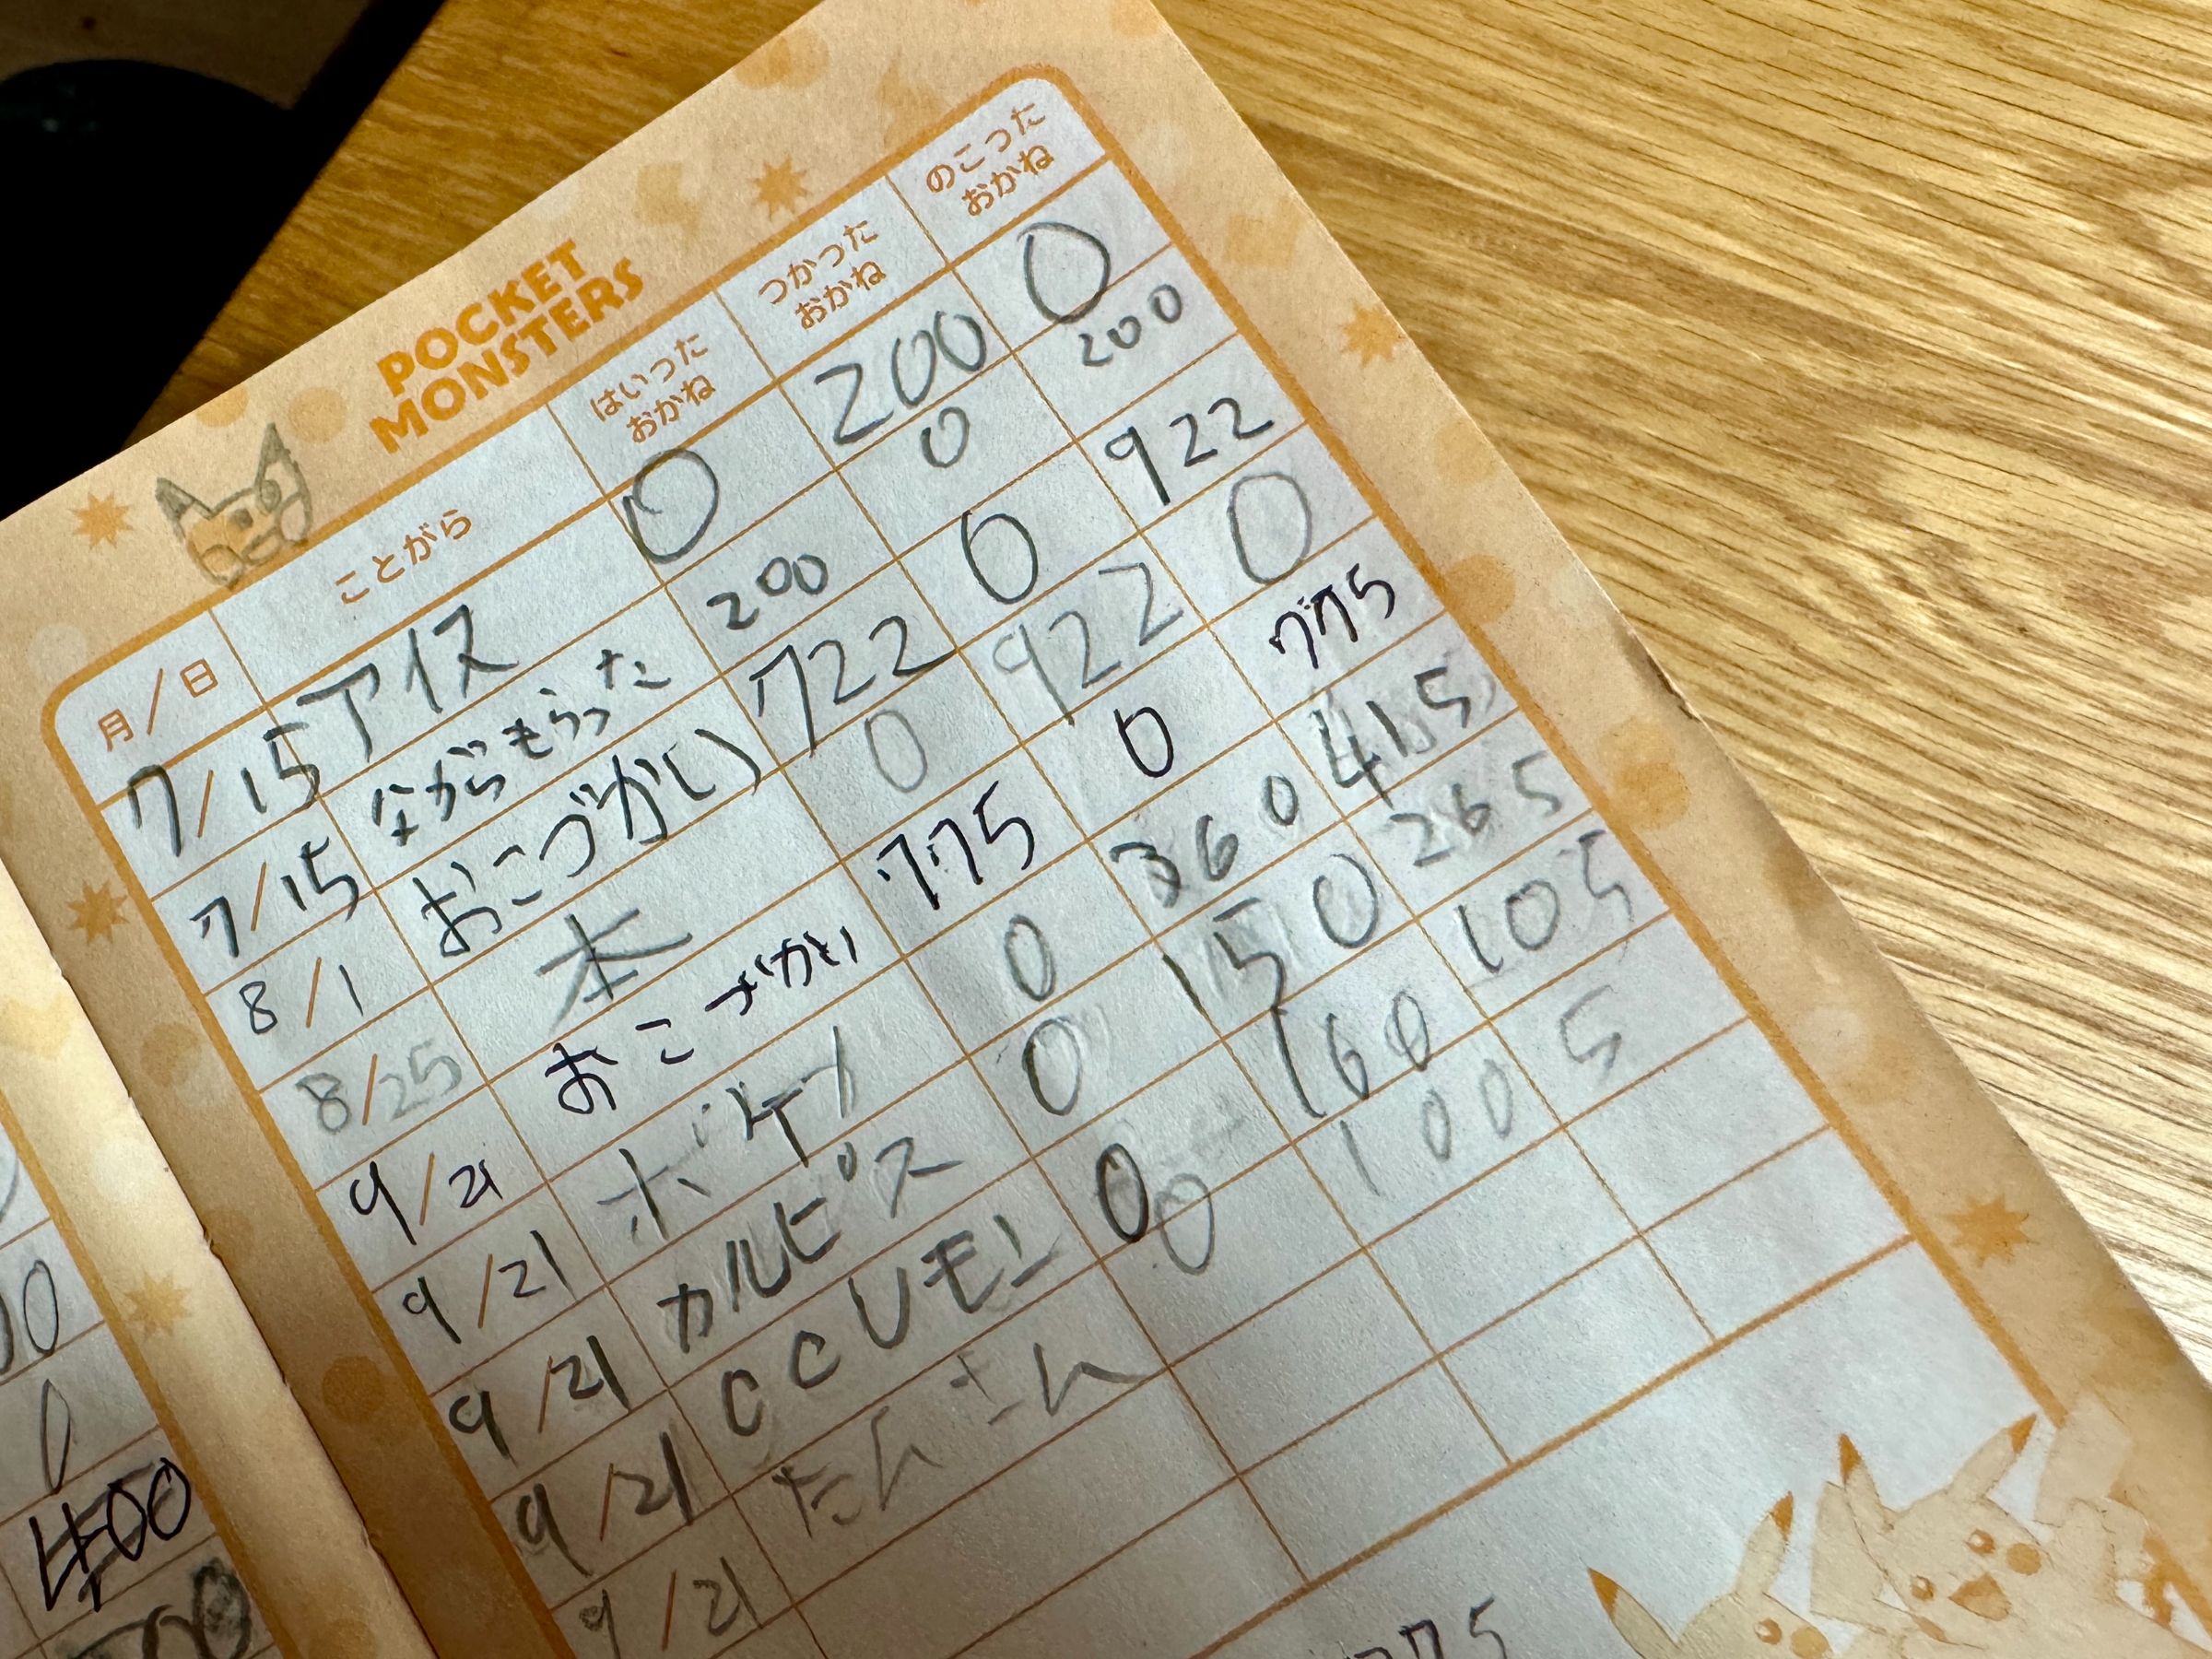 POCKET
MONSTERS
月/日 ことがら はいった おかね つかった おかね のこった おかね
7/15 アイス 0 200 0
7/15 ながらもらった 200 0 200
8/1 おこづかい 722 0 922
8/25 本 0 922 0
9/21 おこづかい 775 0 775
9/21 ポケ 0 360 415
9/21 カルピス 0 150 265
9/21 CCUモン 0 160 105
9/21 たんさん 0 100 5
775
00
0
400